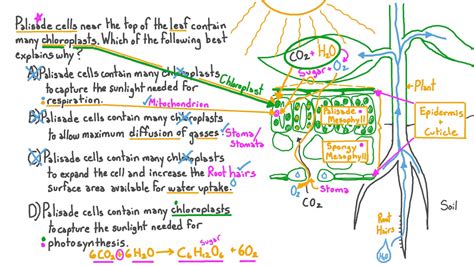 Palisade cells near the top of the leaf contain
many chloroplasts. Which of the following best
explains why?
A) Palisade cells contain many chloroplasts
to capture the sunlight needed for
respiration.
Mitochondrion
B) Palisade cells contain many chloroplasts
to allow maximum diffusion of gasses.
Stoma/
Stomata
C) Palisade cells contain many chloroplasts
to expand the cell and increase the
Root hairs
surface area available for water uptake.
D) Palisade cells contain many chloroplasts
to capture the sunlight needed for
photosynthesis.
Sugar
6CO2+6H2O → C6H12O6 + 6O2
Chloroplast
CO2 + H2O
Sugar + O2
Palisade
Mesophyll
Spongy
Mesophyll
O2
Stoma
CO2
Plant
Epidermis
+
Cuticle
Soil
Root
Hairs
H2O